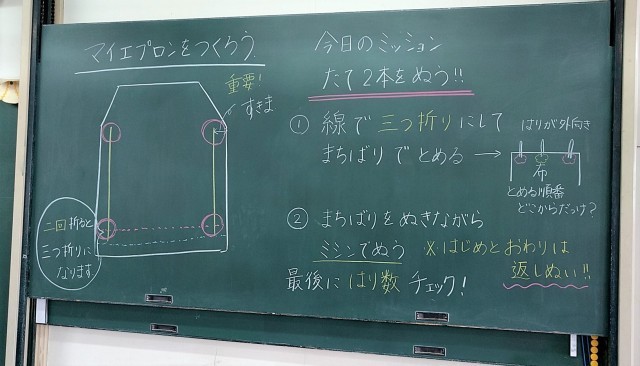 マイエプロンをつくろう
重要!
すきま
二回折ると
三つ折りに
なります
今日のミッション
たて2本をぬう!!
① 線で三つ折りにして
まちばりでとめる →
はりが外向き
布
とめる順番
どこからだっけ?
② まちばりをぬきながら
ミシンでぬう
※はじめとおわりは
返しぬい!!
最後にはり数チェック!